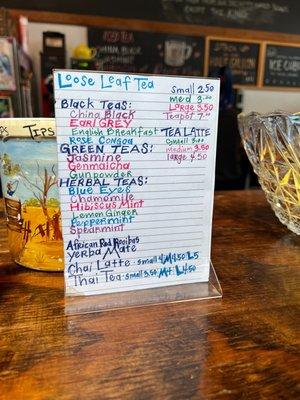 Loose Leaf Tea
Small 2.50
med 3.00
Large 3.50
Teapot 7.00
Black Teas:
China Black
Earl GREY
English Breakfast
Rose Congou
GREEN TEAS:
Jasmine
Genmaicha
Gunpowder
HERBAL TEAS:
Blue Eyes
Chamomile
Hibiscus Mint
Lemon Ginger
Peppermint
Spearmint
African Red Rooibos
Yerba Mate
Chai Latte - Small 4 M4.50 L5
Thai Tea - Small 3.50 M4 L4.50
TEA LATTE
Small 3.00
Medium 3.50
Large 4.50
TIPS
ICED TEA
CHINA BLACK
ICE CUBED